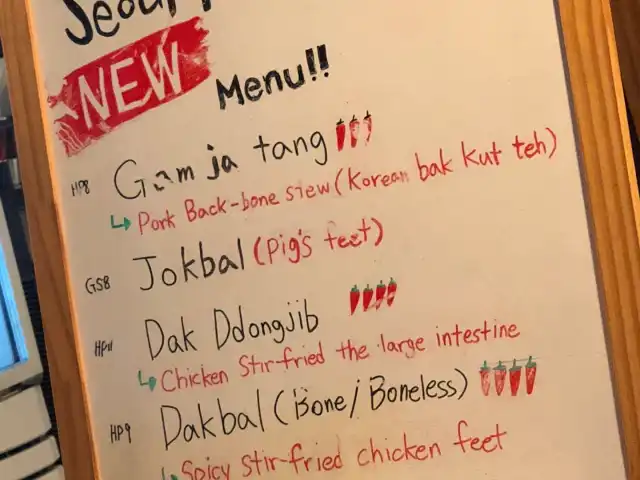 Seoul
NEW Menu!!
HP8 Gamja tang
↳ Pork Back-bone stew (Korean bak kut teh)
GS8 Jokbal (Pig's feet)
HP11 Dak Ddongjib
↳ Chicken Stir-fried the large intestine
HP9 Dakbal (Bone/Boneless)
↳ Spicy Stir-fried chicken feet